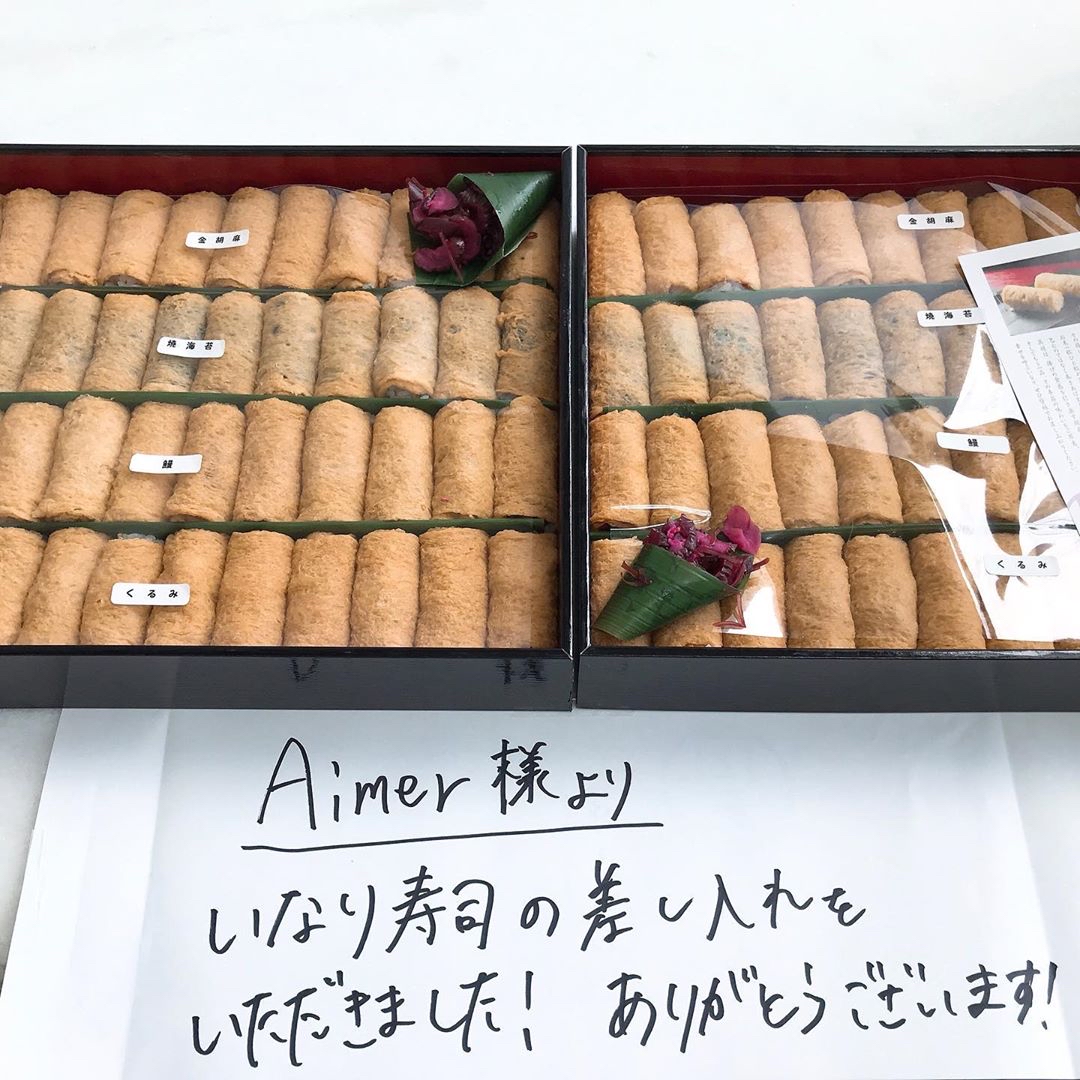 金胡麻
焼海苔
鰻
くるみ
金胡麻
焼海苔
鰻
くるみ
Aimer様より
いなり寿司の差し入れを
いただきました! ありがとうございます!